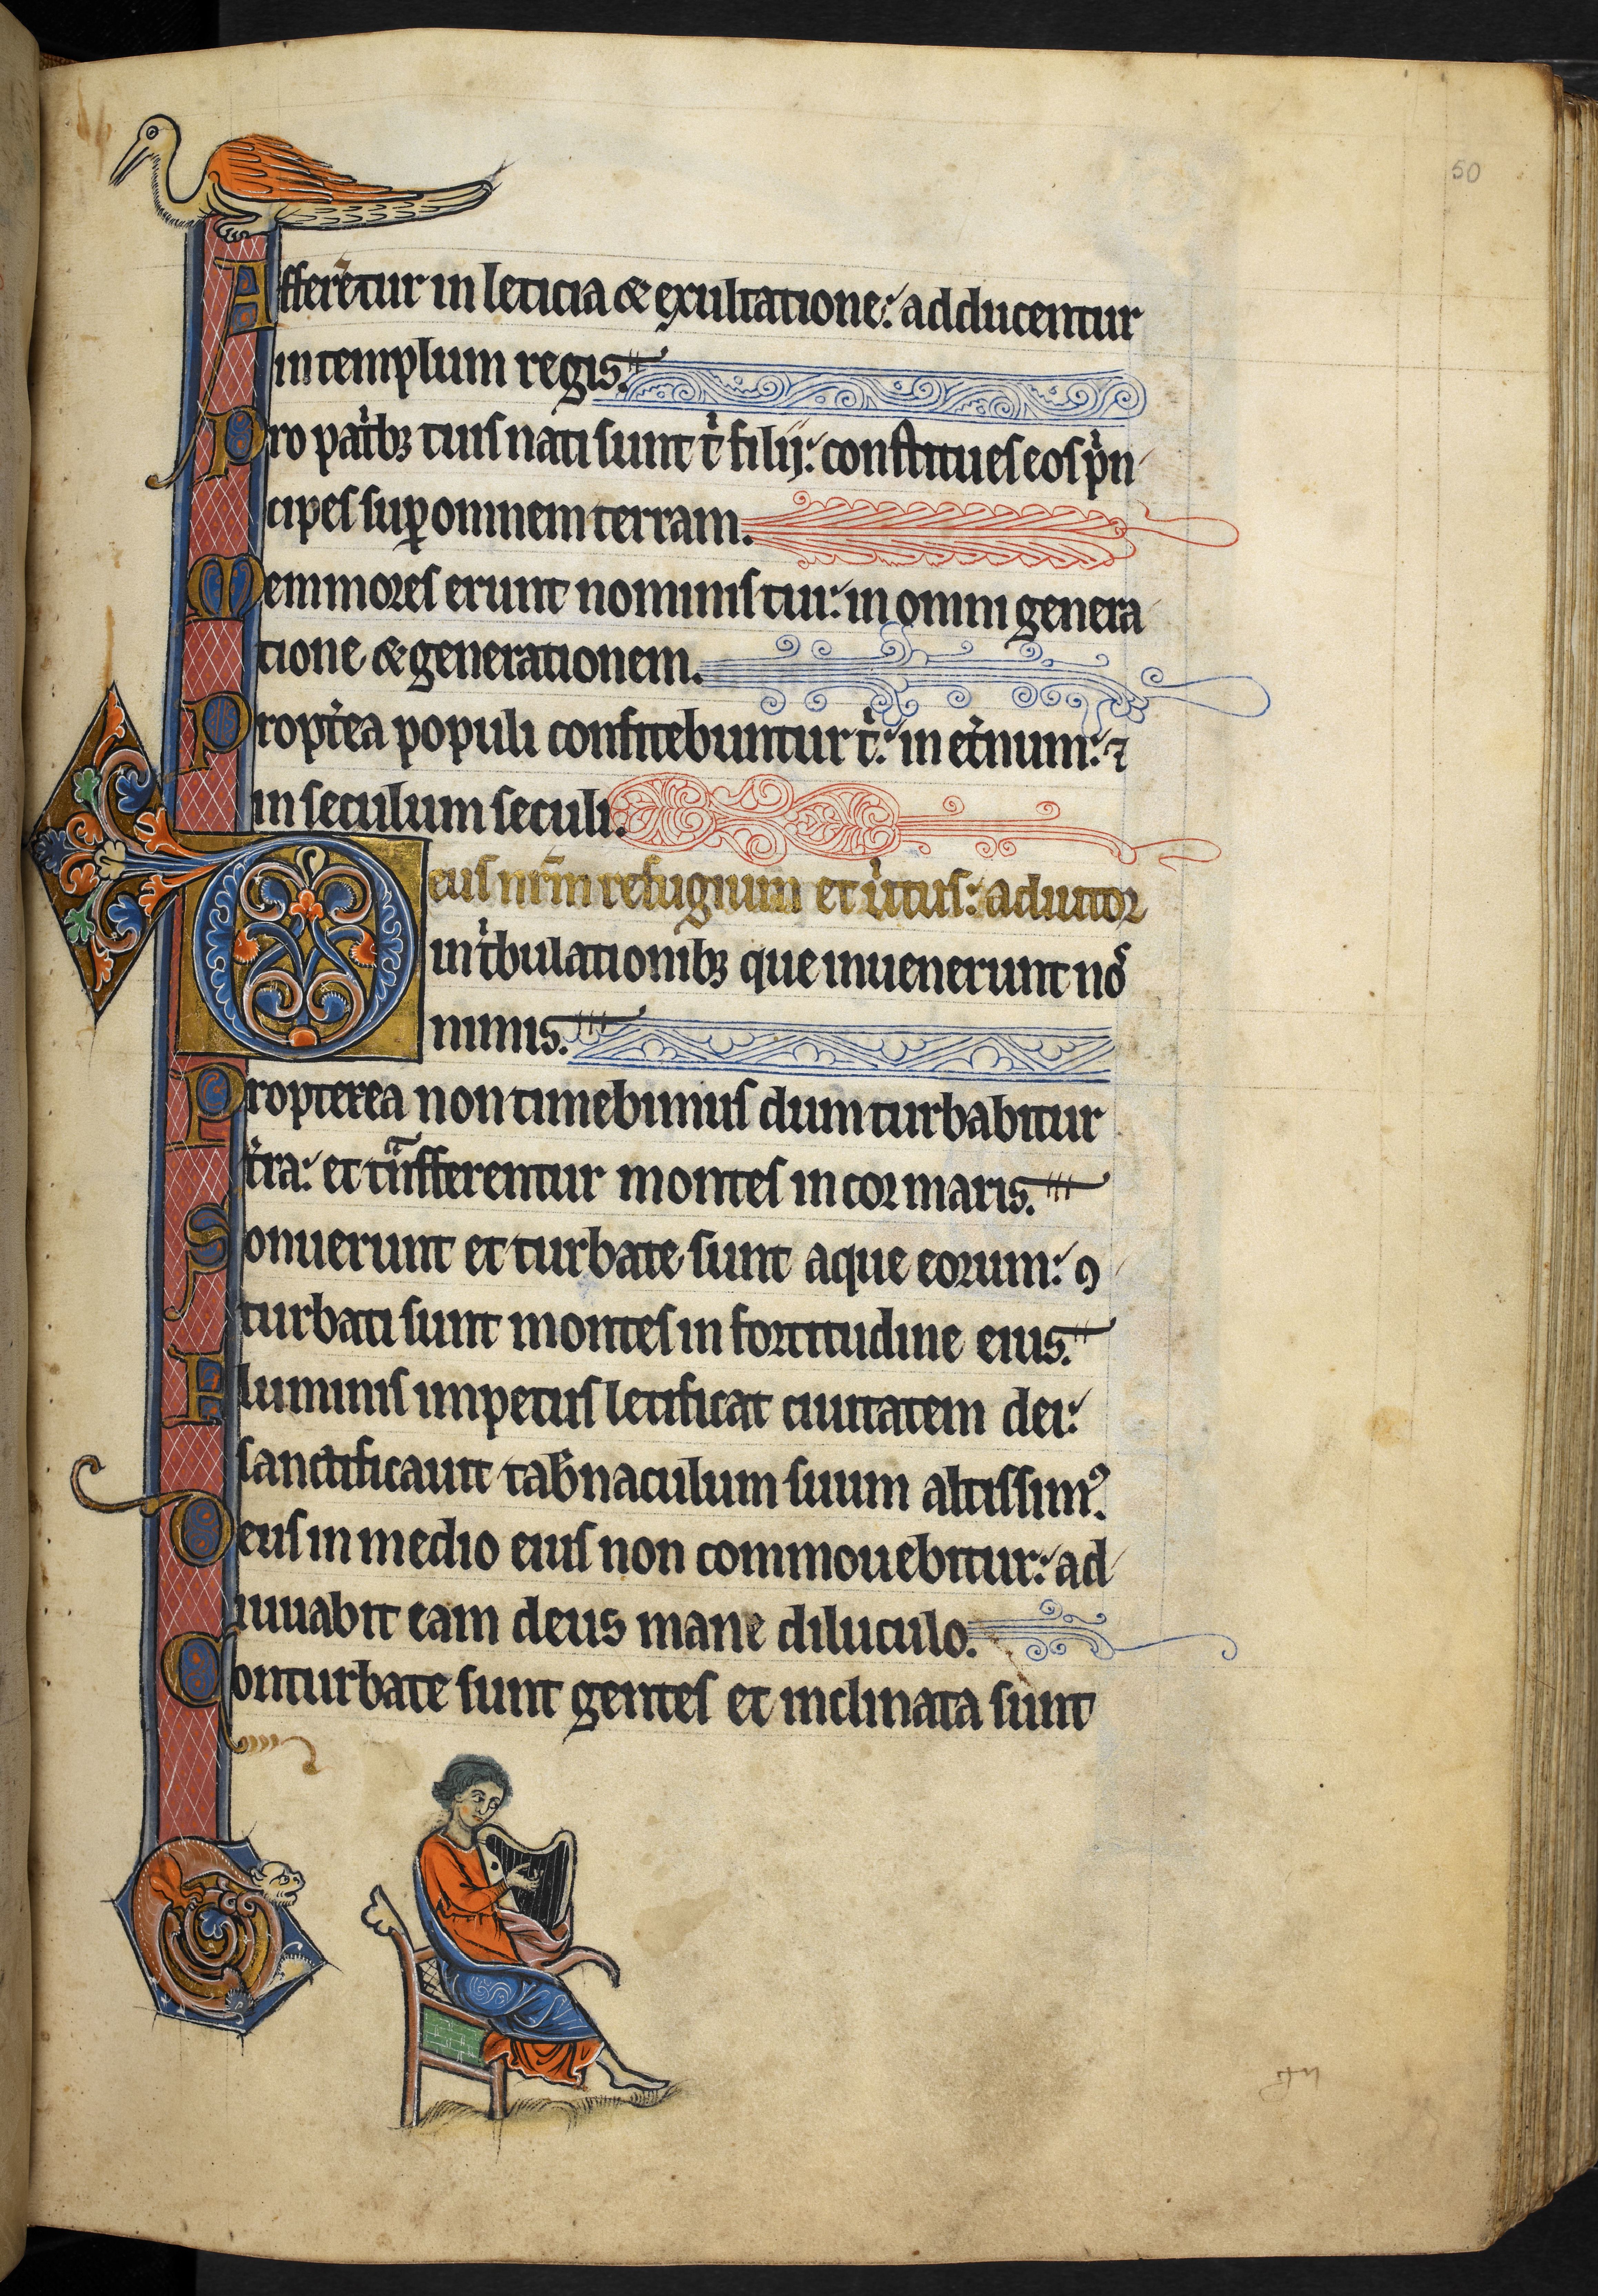 50
Afferētur in leticia & exultatione: adducentur
in templum regis.
Pro pat̾bꝫ tuis nati sunt t̾ filij: constitues eos p̾n
cipes suꝑ omnem terram.
Memmores erunt nominis tui: in omni genera
tione & generationem.
Propt̾ea populi confitebuntur t̾: in et̾num: ⁊
in seculum seculi.
Deus nr̄m refugium et u̾tus: adiutor
in t̾bulationibꝫ que inuenerunt nos
nimis.
Propterea non timebimus dum turbabitur
t̾ra: et tᵃnsferentur montes in cor maris.
Sonuerunt et turbate sunt aque eorum: ꝯ
turbati sunt montes in fortitudine eius.
Fluminis impetus letificat ciuitatem dei:
sanctificauit tab̾naculum suum altissimꝰ.
Deus in medio eius non commouebitur: ad
iuuabit eam deus mane diluculo.
Conturbate sunt gentes et inclinata sunt